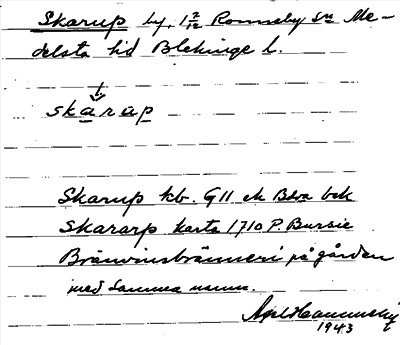 Skarup by, 1 2/12 Romseby sn Me-
delsta hd Blekinge l.
skarup
Skarup kb. G11 ek Bdva bek
Skararp karta 1710 P. Bursie
Brännvinsbränneri på gården
med samma namn.
1943